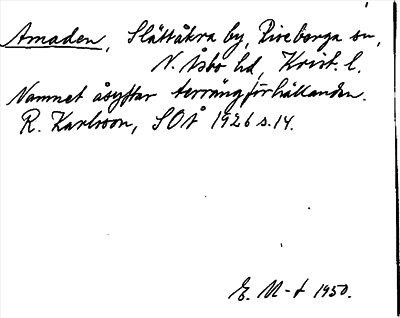 Amaden, Slättåkra by, Riseberga sn,
N. Åsbo hd, Krist. l.
Namnet åsyftar terrängförhållanden.
R. Karlsson, SOÅ 1926 s. 14.
E. M-t 1950.